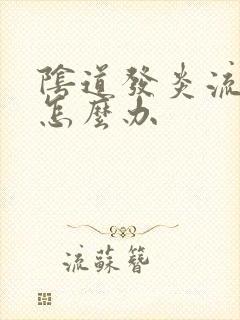 陰道發炎流
怎麼办
流蘇簪